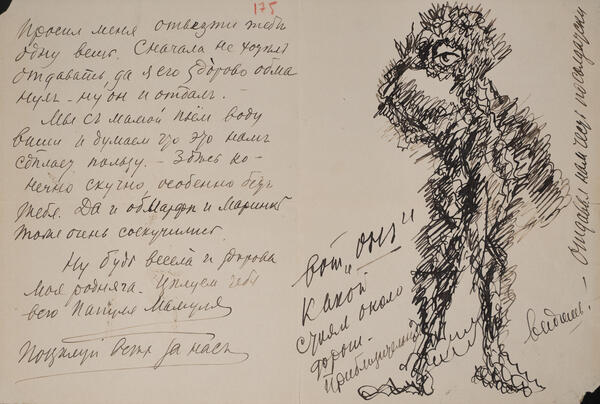 175
Просил меня отвезти тебѣ
одну вещь. Сначала не хотѣлъ
отдавать, да я его здорово обма
нулъ — ну он и отдалъ. —
Мы с мамой пьем воду
виши и думаем что это намъ
сдѣлает пользу. — Здѣсь ко-
нечно скучно, особенно безъ
тебя. Да и об и Маринкѣ
тоже очень соскучились.
Ну будь весела и здорова
моя родняга. Цѣлуем тебя
Папуля Мамуля
Поцѣлуй всѣх за насъ
вот онъ и
какой
стоял около
дорог.
Приблизительно
видишь!
Отдавал нам честь по-солдатски